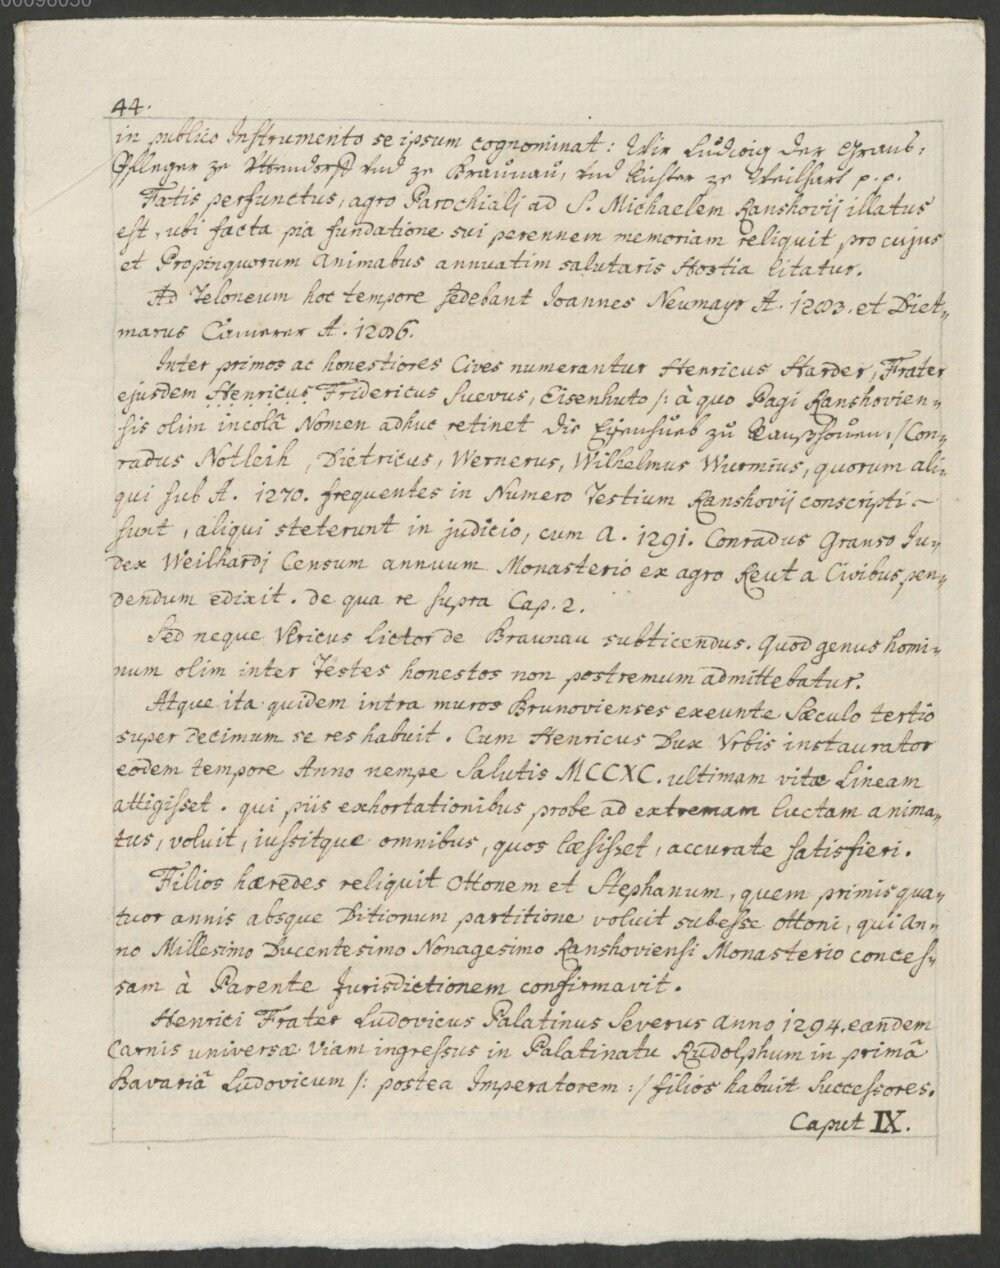 00096050
44.
in publico Instrumento se ipsum cognominat: Wir Ludwig der Grans,
Pfleger ze Uttendorff vnd ze Braunau, vnd Richter ze Weilhart p. p.
Fatis perfunctus, agro Parochialj ad S. Michaelem Ranshovij illatus
est, ubi facta pia fundatione sui perennem memoriam reliquit, pro cujus
et Propinquorum Animabus annuatim salutaris Hostia litatur.
Ad Teloneum hoc tempore sedebant Joannes Neumayr A. 1283. et Diet-
marus Camerer A. 1286.
Inter primos ac honestiores Cives numerantur Henricus Harder, Frater
ejusdem Henricus Fridericus Suevus, Eisenhuto /: à quo Pagi Ranshovien-
sis olim incolâ Nomen adhuc retinet die Eisenhueb zu Ranßhoven :/ Con-
radus Notleih, Dietricus, Wernerus, Wilhelmus Wurmius, quorum ali-
qui sub A. 1270. frequentes in Numero Testium Ranshovij conscripti
sunt, aliqui steterunt in judicio, cum A. 1291. Conradus Granso Ju-
dex Weilhardj Censum annuum Monasterio ex agro Reut a Civibus pen-
dendum edixit. de qua re supra Cap. 2.
Sed neque Vlricus lictor de Braunau subticendus. Quod genus homi-
num olim inter Testes honestos non postremum admittebatur.
Atque ita quidem intra muros Brunovienses exeunte Sæculo tertio
super decimum se res habuit. Cum Henricus Dux Vrbis instaurator
eodem tempore Anno nempe Salutis MCCXC. ultimam vitæ Lineam
attigisset. qui piis exhortationibus probe ad extremam luctam anima-
tus, voluit, iussitque omnibus, quos læsisset, accurate satisfieri.
Filios hæredes reliquit Ottonem et Stephanum, quem primis qua-
tuor annis absque Ditionum partitione voluit subesse Ottoni, qui An-
no Millesimo Ducentesimo Nonagesimo Ranshoviensi Monasterio conces-
sam à Parente Jurisdictionem confirmavit.
Henrici Frater Ludovicus Palatinus Severus Anno 1294. eandem
Carnis universæ Viam ingressus in Palatinatu Rudolphum in primâ
Bavariâ Ludovicum /: postea Imperatorem :/ filios habuit Successores.
Caput IX.